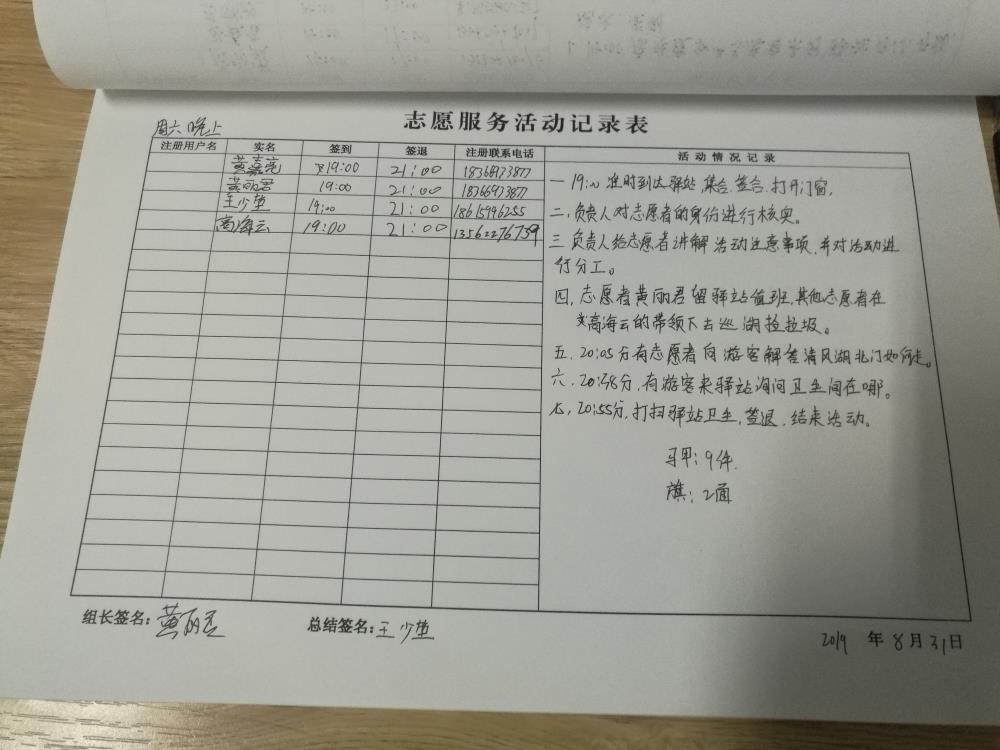 志愿服务活动记录表
周六晚上
注册用户名 实名 签到 签退 注册联系电话 活动情况记录
黄嘉亮 19:00 21:00 18368973877
黄丽君 19:00 21:00 18366973877
王少堃 19:00 21:00 18615996255
高海云 19:00 21:00 13562276739
一 19:00 准时到达驿站,集合.签合.打开门窗,
二,负责人对志愿者的身份进行核实。
三 负责人给志愿者讲解活动注意事项,并对活动进
行分工。
四,志愿者黄丽君留驿站值班,其他志愿者在
高海云的带领下去巡湖捡垃圾。
五.20:05分有志愿者向游客解答清风湖北门如何走。
六.20:48分,有游客来驿站询问卫生间在哪。
七,20:55分,打扫驿站卫生,签退.结束活动。
马甲:9件.
旗:2面
组长签名:黄丽君 总结签名:王少堃
2019 年 8 月 31 日